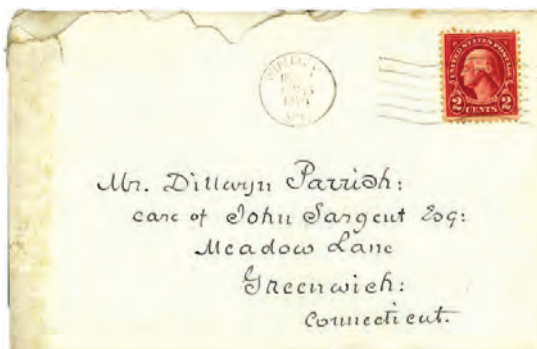 UNITED STATES POSTAGE
2 CENTS 2
Mr. Dillwyn Parrish:
care of John Sargent Esq:
Meadow Lane
Greenwich:
Connecticut.